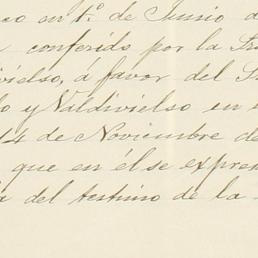 en 1º de Junio d
conferido por la
á favor del
o y Valdivielso en
14 de Noviembre de
que en él se expre
del testimo de la